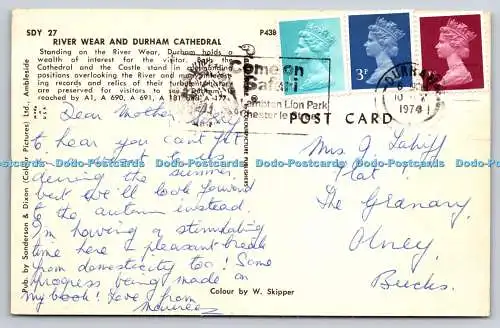 SDY 27
P438
RIVER WEAR AND DURHAM CATHEDRAL
Standing on the River Wear, Durham holds a
wealth of interest for the visitor. Both the
Cathedral and the Castle stand in
positions overlooking the River and
records and relics of their
are preserved for visitors to see.
reached by A1, A 690, A 691, A 181
Dear Mother,
hear you can't get
during the summer,
but we'll look forward
to the autumn instead.
I'm having a stimulating
time here & pleasant break
from domesticity too! Some
progress being made on
my book! Love from
Maureen
Pub. by Sanderson & Dixon (Colour Pictures) Ltd. Ambleside
Colour by W. Skipper
Come on
Safari
Lambton Lion Park
Chester le
3P
DURHAM
1974
POST CARD
Mrs G.
Flat 1
The Granary
Olney
Bucks.
www.historicalpostcards.com